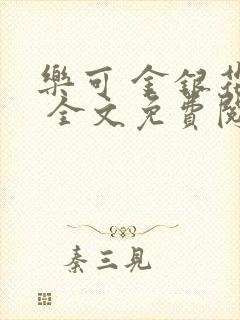 樂可 金銀花
全文免費閱
秦三見